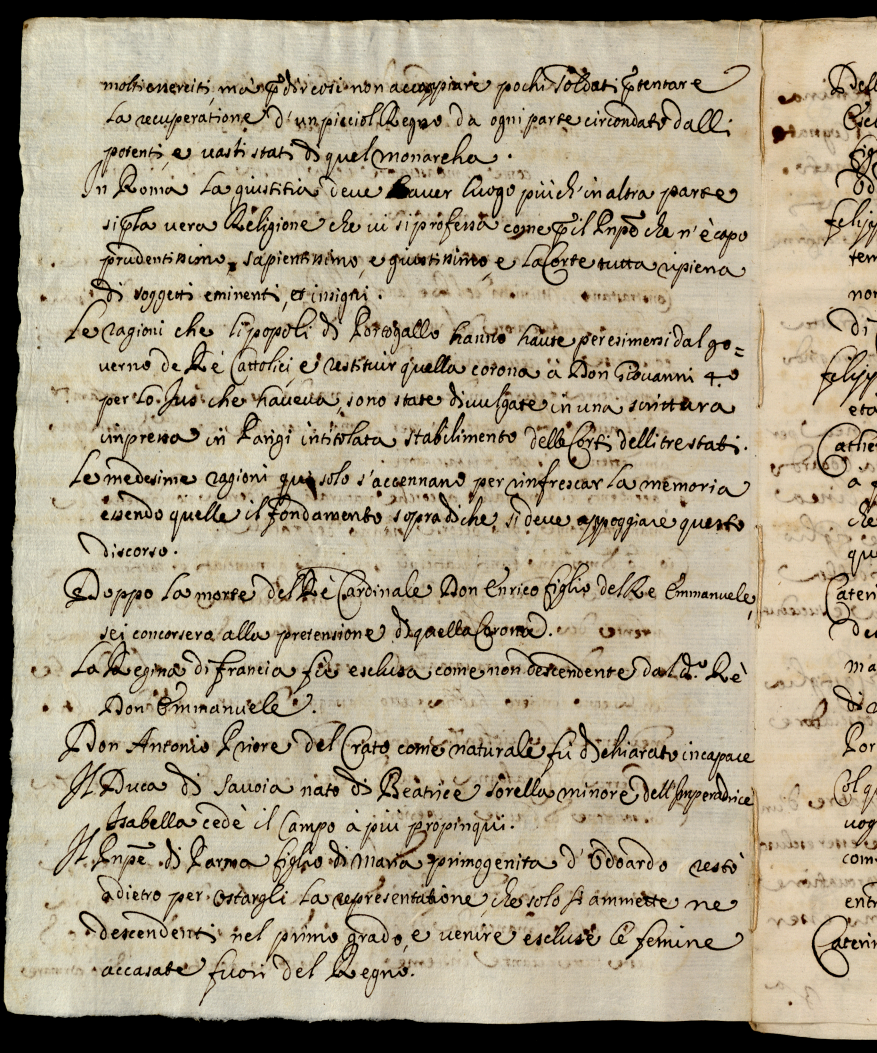 molti esserciti, mà p̱ dir così non accoppiare pochi soldati p̱ tentare
la recuperatione d'un picciol Regno da ogni parte circondato dalli
potenti, e vasti stati di quel monarcha.
In Roma la giustitia deve haver luogo più ch'in altra parte
sì p̱ la vera Religione che vi si professa come p̱ il Pnpē che n'è capo
prudentissimo, sapientissimo, e giustissimo, e la Corte tutta ripiena
di soggetti eminenti, et insigni.
Le ragioni che li popoli di Portogallo hanno haute per esimersi dal go=
verno de Rè Cattolici, e restituir quella corona à Don Giovanni 4.º
per lo Jus che haveva, sono state divulgate in una scrittura
impressa in Parigi intitolata stabilimento delle Corti delli tre stati.
Le medesime ragioni qui solo s'accennano per rinfrescar la memoria
essendo quelle il fondamento sopra di che si deve appoggiare questo
discorso.
Doppo la morte del Rè Cardinale Don Enrico figlio del Re Emmanuele,
sei concorsero alla pretensione di quella Corona.
La Regina di francia fù esclusa come non descendente dal d.º Rè
Don Emmanuele.
Don Antonio Priore del Crato come naturale fù dichiarato incapace
Il Duca di Savoia nato di Beatrice sorella minore dell'Imperadrice
Isabella cedè il Campo à più propinqui.
Il Pnpē di Parma figlio di Maria primogenita d'Odoardo restò
adietro per ostargli la representatione, che solo si ammette ne
descendenti nel primo grado, e venire escluse le femine
accasate fuori del Regno.